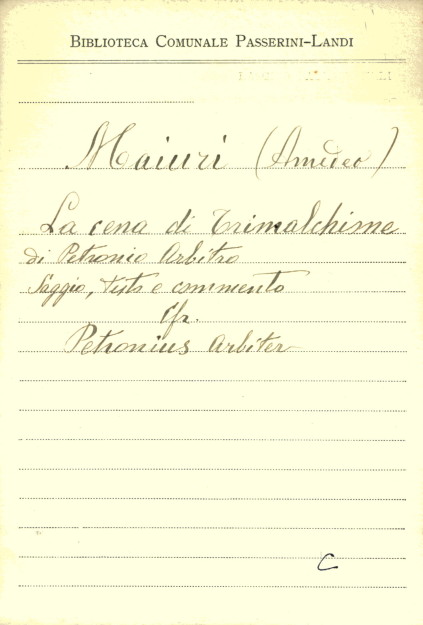 BIBLIOTECA COMUNALE PASSERINI-LANDI
Maiuri (Amedeo)
La cena di Trimalchione
di Petronio Arbitro
Saggio, testo e commento
Cfr.
Petronius Arbiter
C